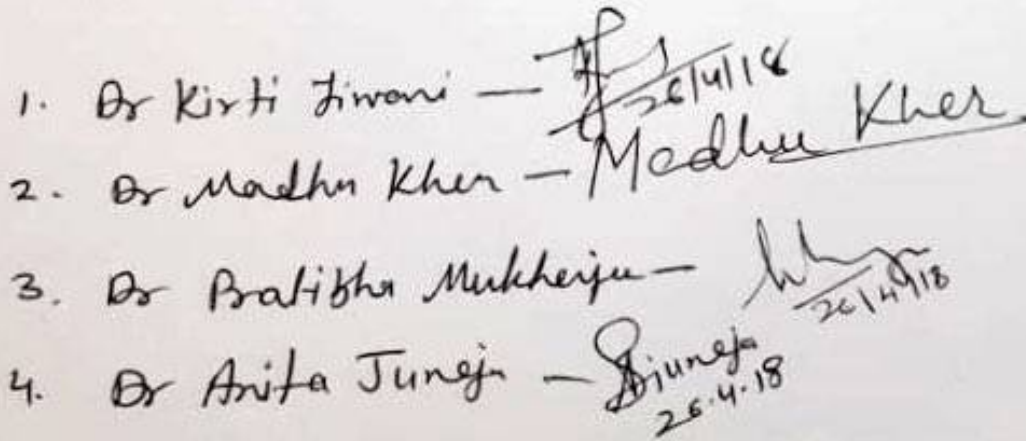 1. Dr Kirti Jiwani — 26/4/18
2. Dr Madhu Kher — Madhu Kher
3. Dr Pratibha Mukherjee — 26/4/18
4. Dr Anita Juneja — Ajuneja
26.4.18